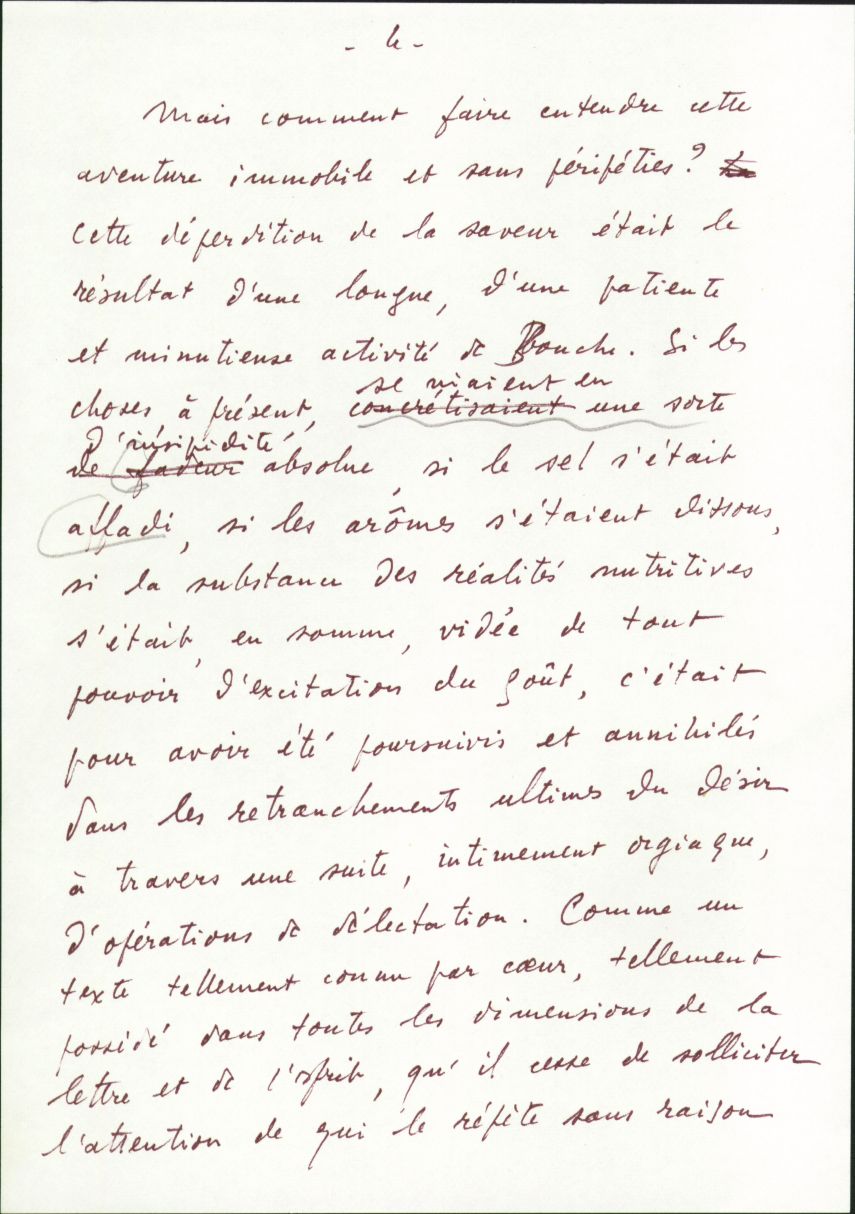 - 4 -
Mais comment faire entendre cette
aventure immobile et sans péripéties ?
Cette déperdition de la saveur était le
résultat d'une longue, d'une patiente
et minutieuse activité de Bouche. Si les
se niaient en
choses à présent, concrétisaient une sorte
d'insipidité
de fadeur absolue, si le sel s'était
affadi, si les arômes s'étaient dissous,
si la substance des réalités nutritives
s'était, en somme, vidée de tout
pouvoir d'excitation du goût, c'était
pour avoir été poursuivis et annihilés
dans les retranchements ultimes du désir
à travers une suite, intimement orgiaque,
d'opérations de délectation. Comme un
texte tellement connu par cœur, tellement
possédé dans toutes les dimensions de la
lettre et de l'esprit, qu'il cesse de solliciter
l'attention de qui le répète sans raison